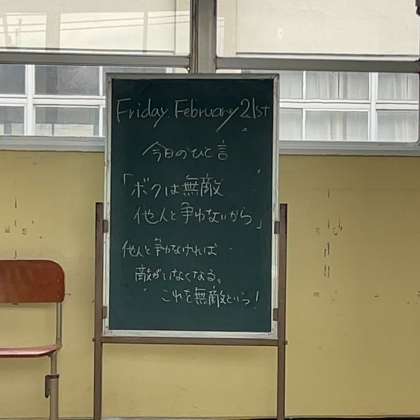 Friday February 21ST
今日のひと言
「ボクは無敵
他人と争わないから」
他人と争わなければ
敵がいなくなる。
これを無敵という!